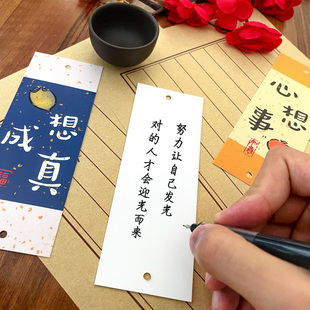 想
成
真
福
努力让自己发光
对的人才会迎光而来
心
想
事